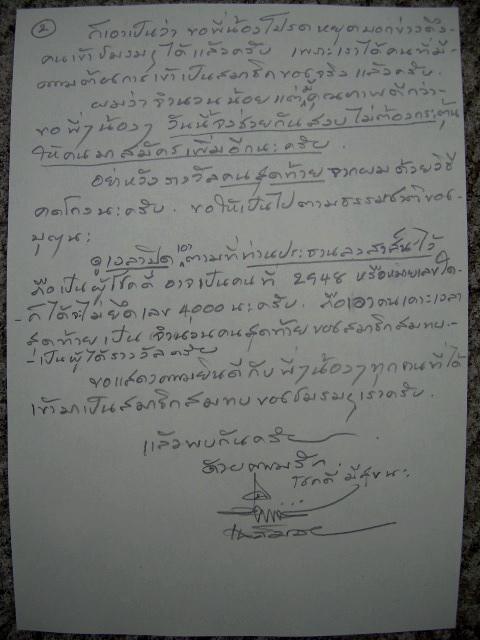 ②
ก็เอาเป็นว่า ขอพี่น้องโปรดหยุดบอกข่าวดึง-
คนเข้าชมรมฯได้แล้วครับ เพราะเราได้คนที่มี-
ความต้องการเข้าเป็นสมาชิกของจริงแล้วครับ.
ผมว่าจำนวนน้อยแต่มีคุณภาพดีกว่า-
ขอพี่ๆน้องๆ วันนี้จงช่วยกันสงบ ไม่ต้องกระตุ้น
ให้คนมาสมัครเพิ่มอีกนะครับ.
อย่าหวังรางวัลคนสุดท้าย จากผมด้วยวิธี
คดโกงนะครับ. ขอให้เป็นไปตามธรรมชาติของ-
บุญนะ
ดูเวลาปิด เอาตามที่ท่านประธานลงสาส์นไว้
คือเป็นผู้โชคดี อาจเป็นคนที่ 2948 หรือหมายเลขใด-
-ก็ได้จะไม่ยึดเลข 4000 นะครับ. คือเอาคนเคาะเวลา
สุดท้ายเป็น จำนวนคนสุดท้ายของสมาชิกสมทบ.-
-เป็นผู้ได้รางวัลครับ
ขอแสดงความยินดีกับ พี่ๆน้องๆทุกคนที่ได้
เข้ามาเป็นสมาชิกสมทบของชมรมฯเราครับ.
แล้วพบกันครับ
ด้วยความรัก.
โชคดี มีสุขนะ.